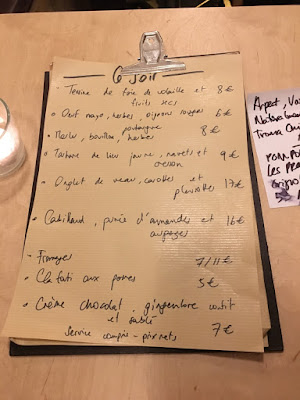 Ce soir
Terrine de foie de volaille et 8€
fruits secs
• Oeuf mayo, herbes, oignons rouges 6€
• Merlu, bouillon, poutargue 8€
herbes
• Tartare de lieu jaune, navets et 9€
cresson
• Onglet de veau, carottes et 17€
pleurottes
• Cabillaud, purée d'amandes et 16€
asperges
• Fromages 7/11€
• Clafoutis aux poires 5€
• Crème chocolat, gingembre confit
et sablé 7€
Service compris - prix nets
Les